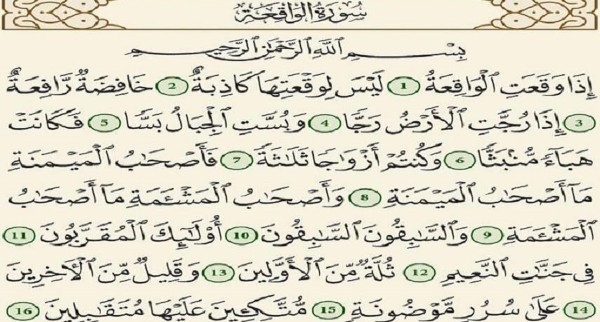 سُورَةُ الْوَاقِعَةِ
بِسْمِ اللَّهِ الرَّحْمَٰنِ الرَّحِيمِ
إِذَا وَقَعَتِ الْوَاقِعَةُ 1 لَيْسَ لِوَقْعَتِهَا كَاذِبَةٌ 2 خَافِضَةٌ رَّافِعَةٌ
3 إِذَا رُجَّتِ الْأَرْضُ رَجًّا 4 وَبُسَّتِ الْجِبَالُ بَسًّا 5 فَكَانَتْ
هَبَاءً مُّنْبَثًّا 6 وَكُنْتُمْ أَزْوَاجًا ثَلَاثَةً 7 فَأَصْحَابُ الْمَيْمَنَةِ
مَا أَصْحَابُ الْمَيْمَنَةِ 8 وَأَصْحَابُ الْمَشْئَمَةِ مَا أَصْحَابُ
الْمَشْئَمَةِ 9 وَالسَّابِقُونَ السَّابِقُونَ 10 أُولَٰئِكَ الْمُقَرَّبُونَ 11
فِي جَنَّاتِ النَّعِيمِ 12 ثُلَّةٌ مِّنَ الْأَوَّلِينَ 13 وَقَلِيلٌ مِّنَ الْآخِرِينَ
14 عَلَىٰ سُرُرٍ مَّوْضُونَةٍ 15 مُّتَّكِئِينَ عَلَيْهَا مُتَقَابِلِينَ 16